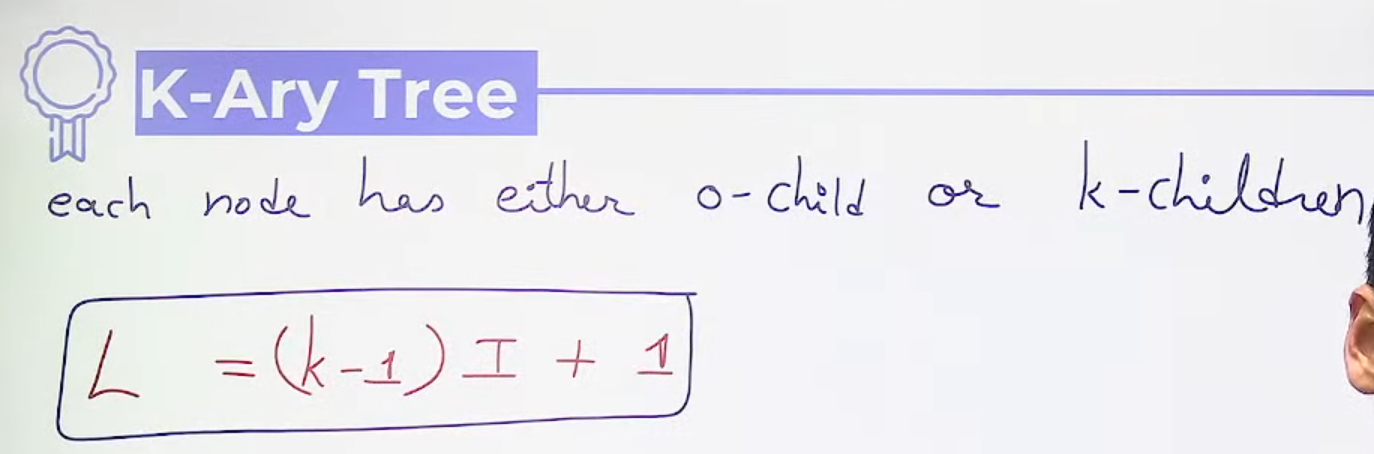 K-Ary Tree
each node has either 0-child or k-children
L = (k-1) I + 1